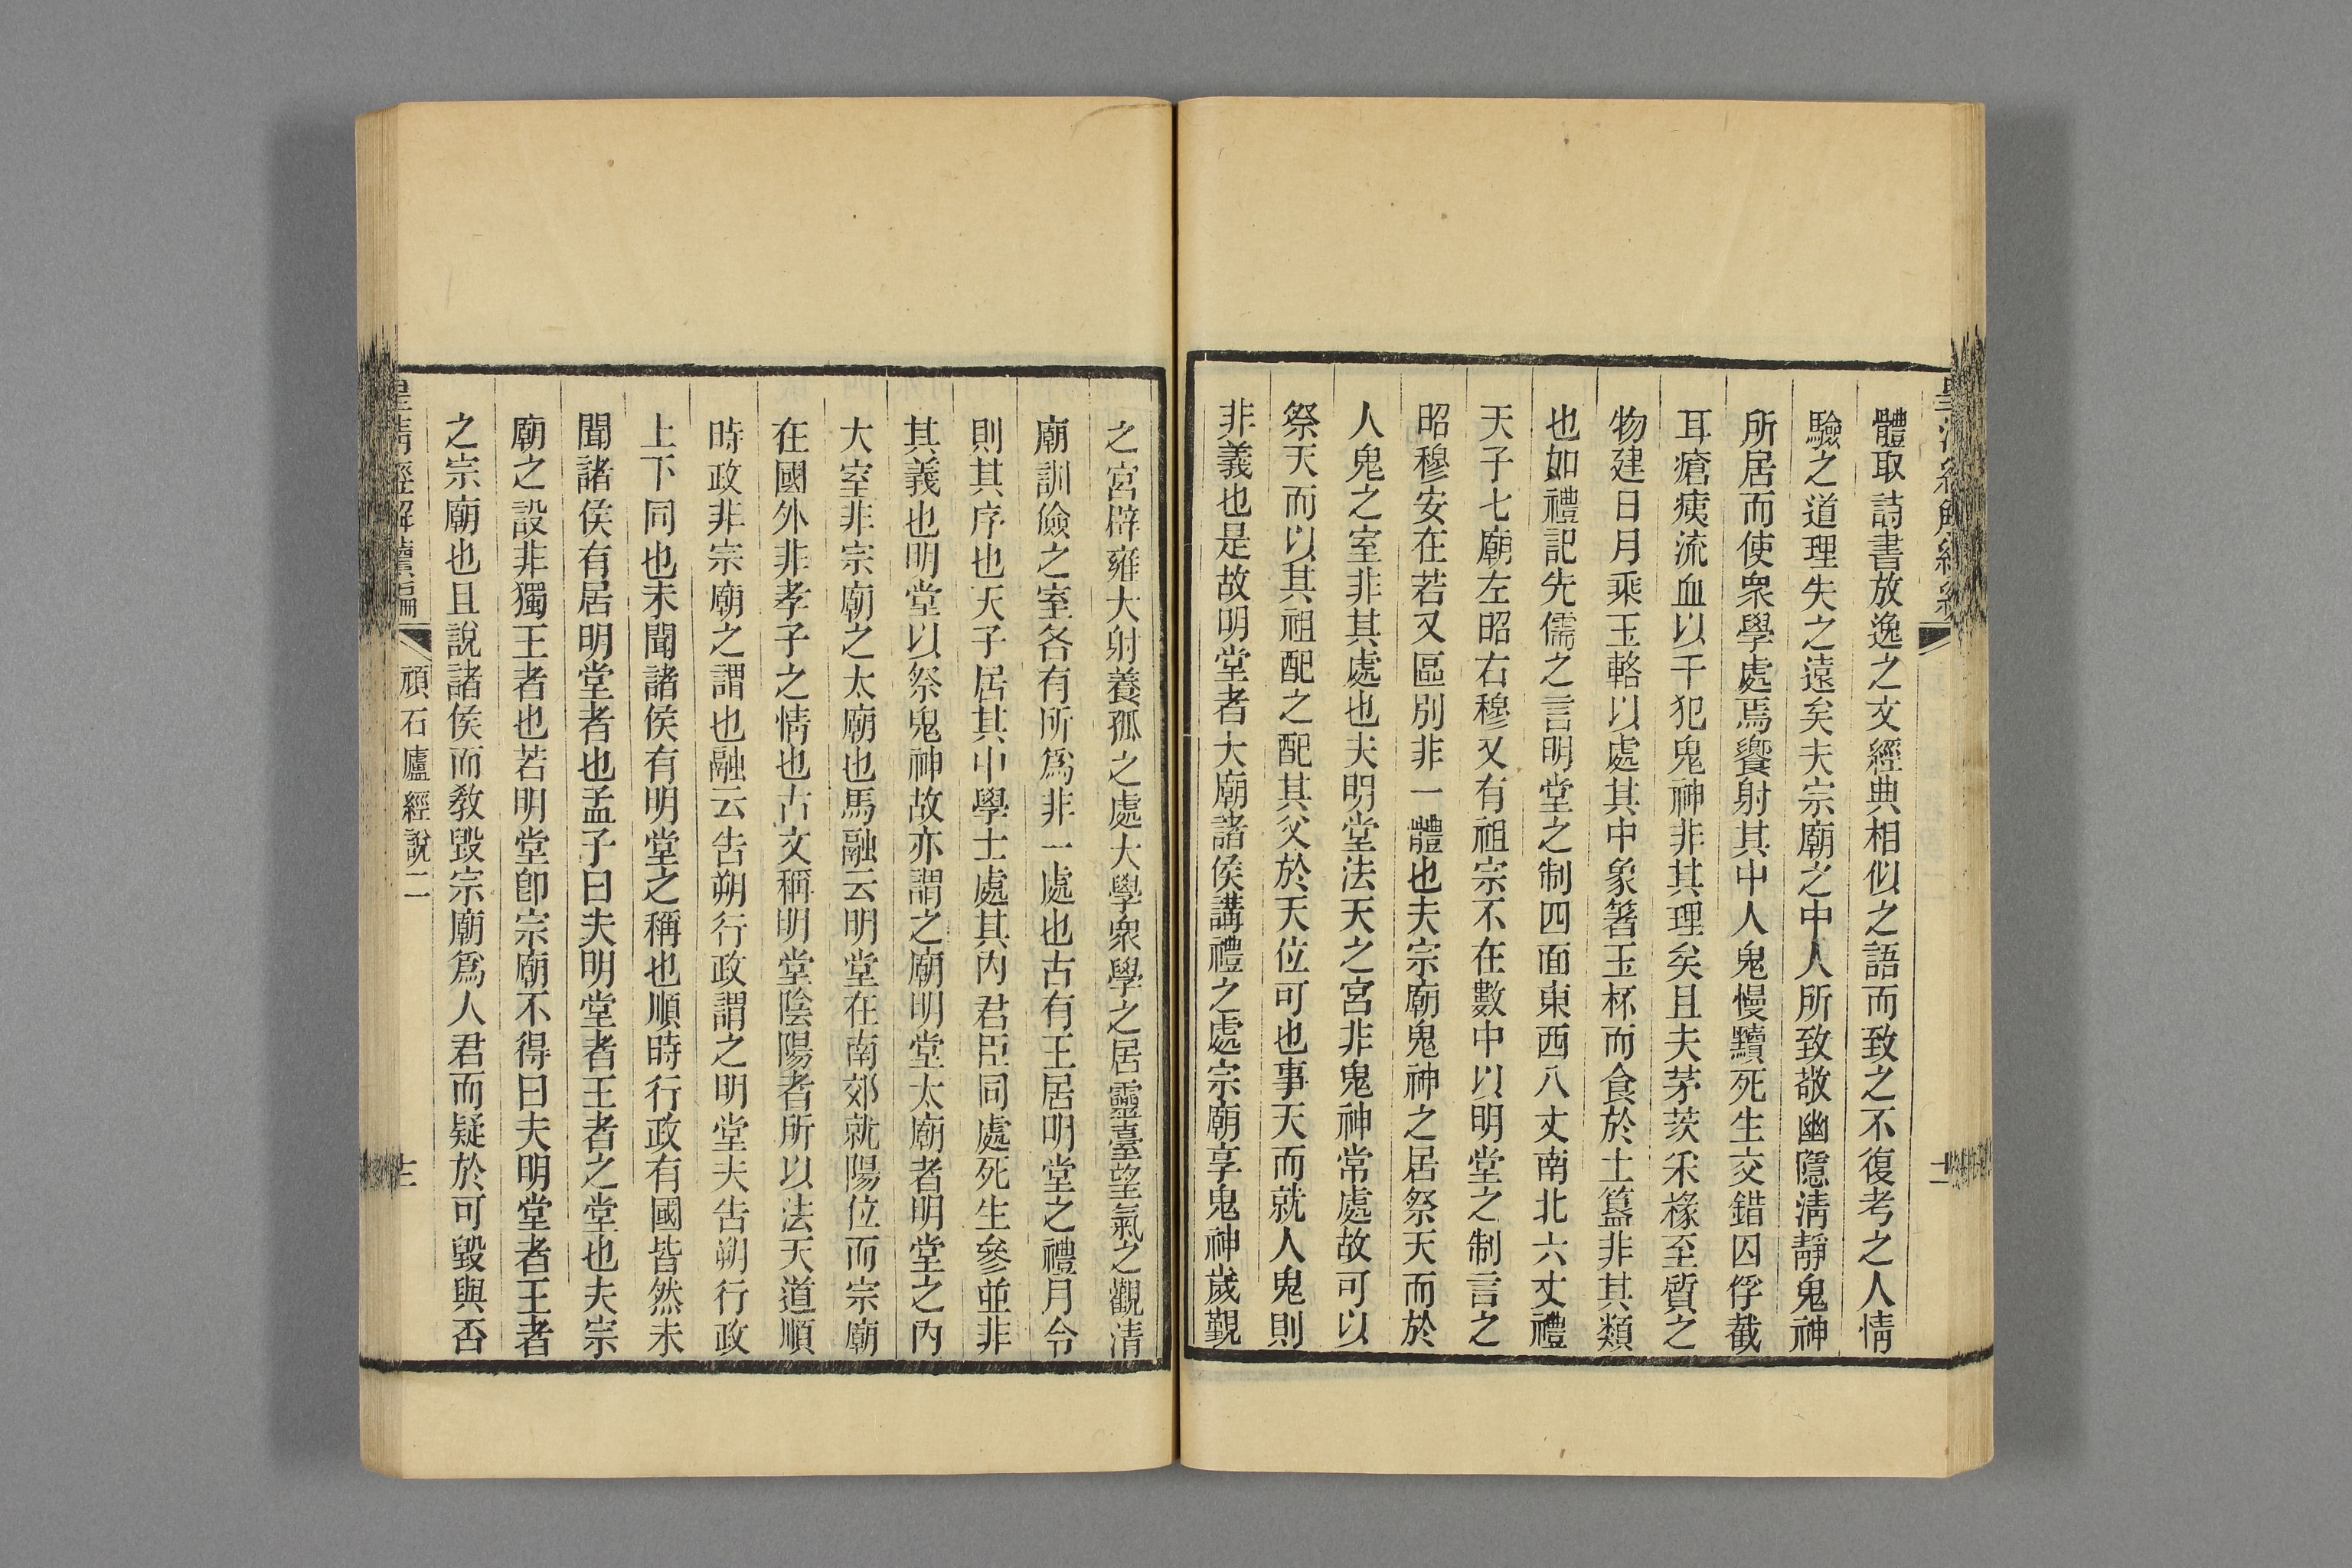 體取詩書放逸之文經典相似之語而致之不復考之人情
驗之道理失之遠矣夫宗廟之中人所致敬幽隱淸靜鬼神
所居而使衆學處焉饗射其中人鬼慢黷死生交錯囚俘截
耳瘡痍流血以干犯鬼神非其理矣且夫茅茨采椽至質之
物建日月乘玉輅以處其中象箸玉杯而食於土簋非其類
也如禮記先儒之言明堂之制四面東西八丈南北六丈禮
天子七廟左昭右穆又有祖宗不在數中以明堂之制言之
昭穆安在若又區別非一體也夫宗廟鬼神之居祭天而於
人鬼之室非其處也夫明堂法天之宮非鬼神常處故可以
祭天而以其祖配之配其父於天位可也事天而就人鬼則
非義也是故明堂者大廟諸侯講禮之處宗廟享鬼神歲覲
之宮辟雍大射養孤之處大學衆學之居靈臺望氣之觀清
廟訓儉之室各有所爲非一處也古有王居明堂之禮月令
則其序也天子居其中學士處其內君臣同處死生參並非
其義也明堂以祭鬼神故亦謂之廟明堂太廟者明堂之內
大室非宗廟之太廟也馬融云明堂在南郊就陽位而宗廟
在國外非孝子之情也古文稱明堂陰陽者所以法天道順
時政非宗廟之謂也融云告朔行政謂之明堂夫告朔行政
上下同也未聞諸侯有明堂之稱也順時行政有國皆然未
聞諸侯有居明堂者也孟子曰夫明堂者王者之堂也夫宗
廟之設非獨王者也若明堂卽宗廟不得曰夫明堂者王者
之宗廟也且說諸侯而敎毀宗廟爲人君而疑於可毀與否
皇淸經解續編
頑石廬經說二